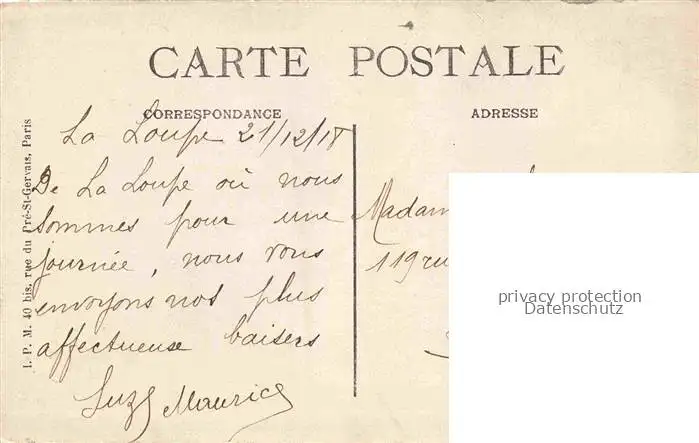 CARTE POSTALE
CORRESPONDANCE
ADRESSE
La Loupe 21/12/18
De La Loupe où nous
sommes pour une
journée, nous vous
envoyons nos plus
affectueuse baisers
Suz Maurice
Madam
119 ru
I. P. M. 40 bis, rue du Pré-St-Gervais, Paris
privacy protection
Datenschutz